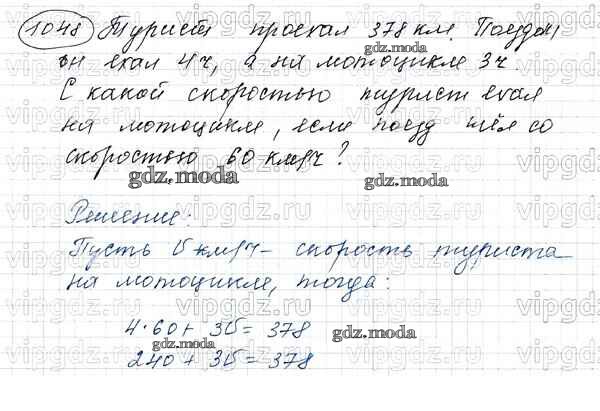 1048 Турист проехал 378 км. Поездом
он ехал 4ч, а на мотоцикле 3ч.
С какой скоростью турист ехал
на мотоцикле, если поезд шёл со
скоростью 60 км/ч?
Решение:
Пусть v км/ч - скорость туриста
на мотоцикле, тогда:
4·60 + 3v = 378
240 + 3v = 378
gdz.moda
gdz.moda
gdz.moda
gdz.moda
gdz.moda
vipgdz.ru